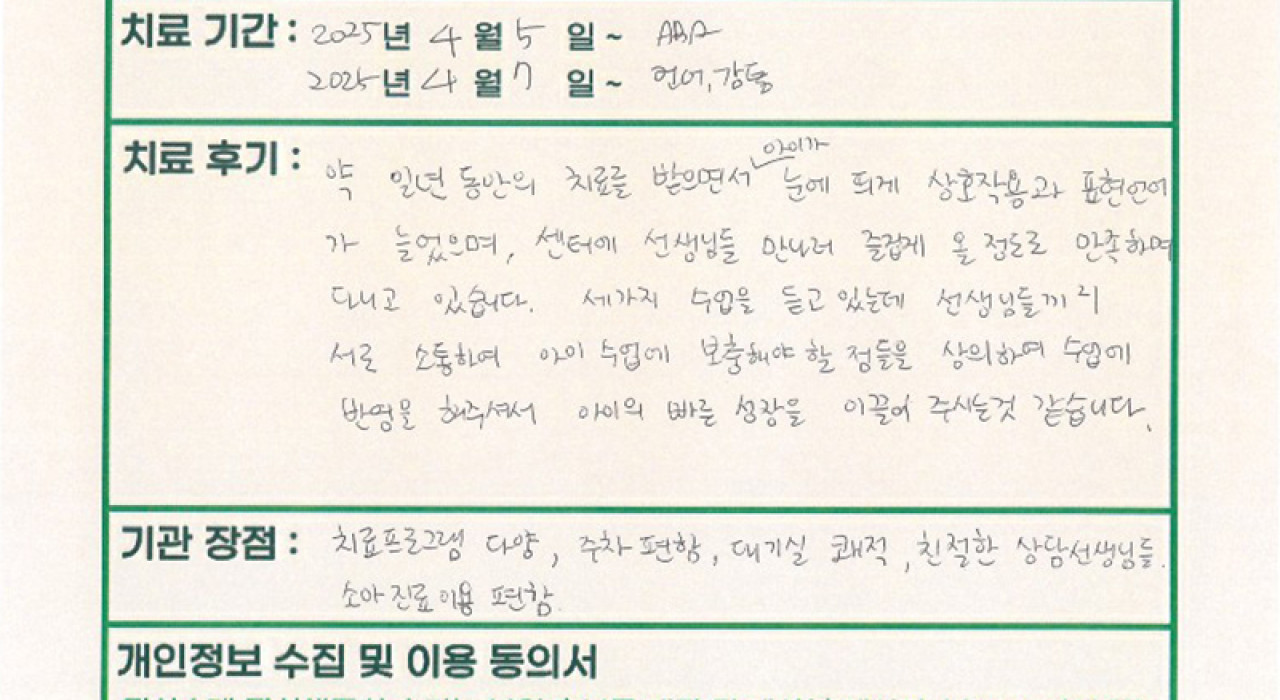 치료 기간 : 2025년 4월 5일 ~ ABA
2025년 4월 7일 ~ 언어, 감통
치료 후기 : 약 일년 동안의 치료를 받으면서 아이가 눈에 띄게 상호작용과 표현언어
가 늘었으며, 센터에 선생님들 만나러 즐겁게 올 정도로 만족하며
다니고 있습니다. 세가지 수업을 듣고 있는데 선생님들끼리
서로 소통하며 아이 수업에 보충해야 할 점들을 상의하며 수업에
반영을 해주셔서 아이의 빠른 성장을 이끌어 주시는것 같습니다.
기관 장점 : 치료프로그램 다양, 주차 편함, 대기실 쾌적, 친절한 상담선생님들.
소아진료 이용 편함.
개인정보 수집 및 이용 동의서